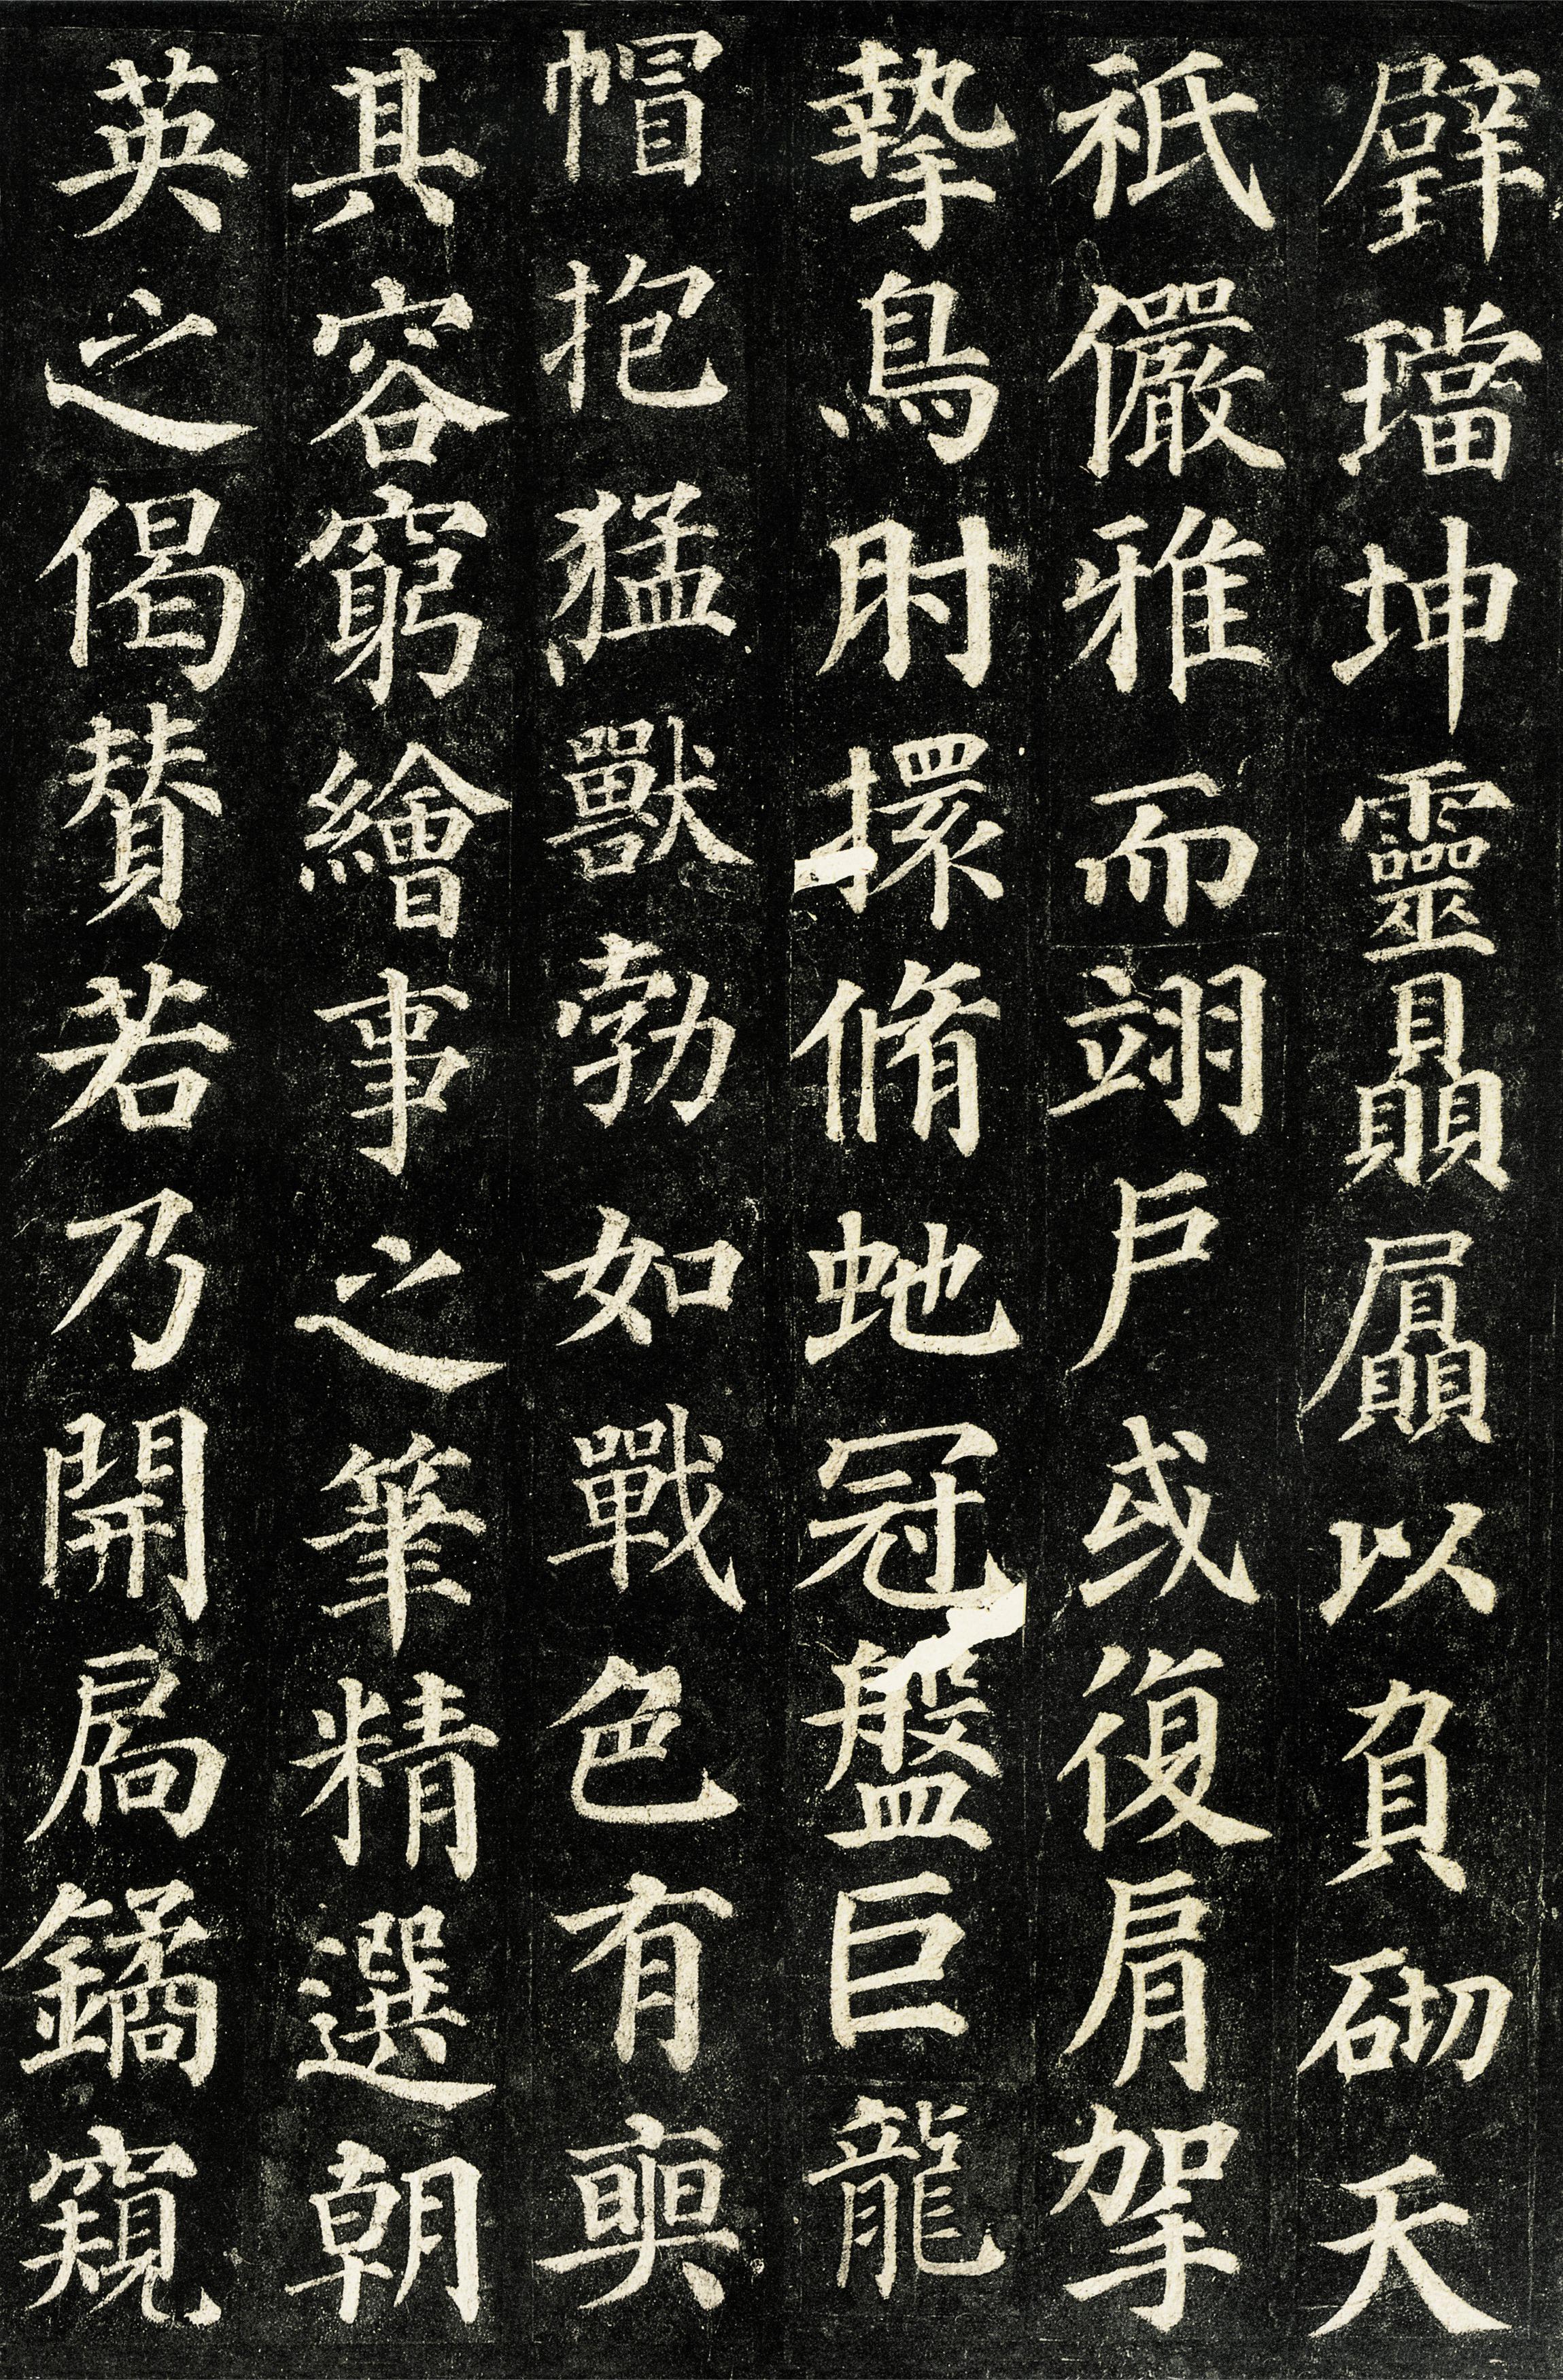 璧璫坤靈贔屭以負砌天
祇儼雅而翊戶或復肩挐
摯鳥肘擐脩虵冠盤巨龍
帽抱猛獸勃如戰色有奭
其容窮繪事之筆精選朝
英之偈賛若乃開扃鐍窺